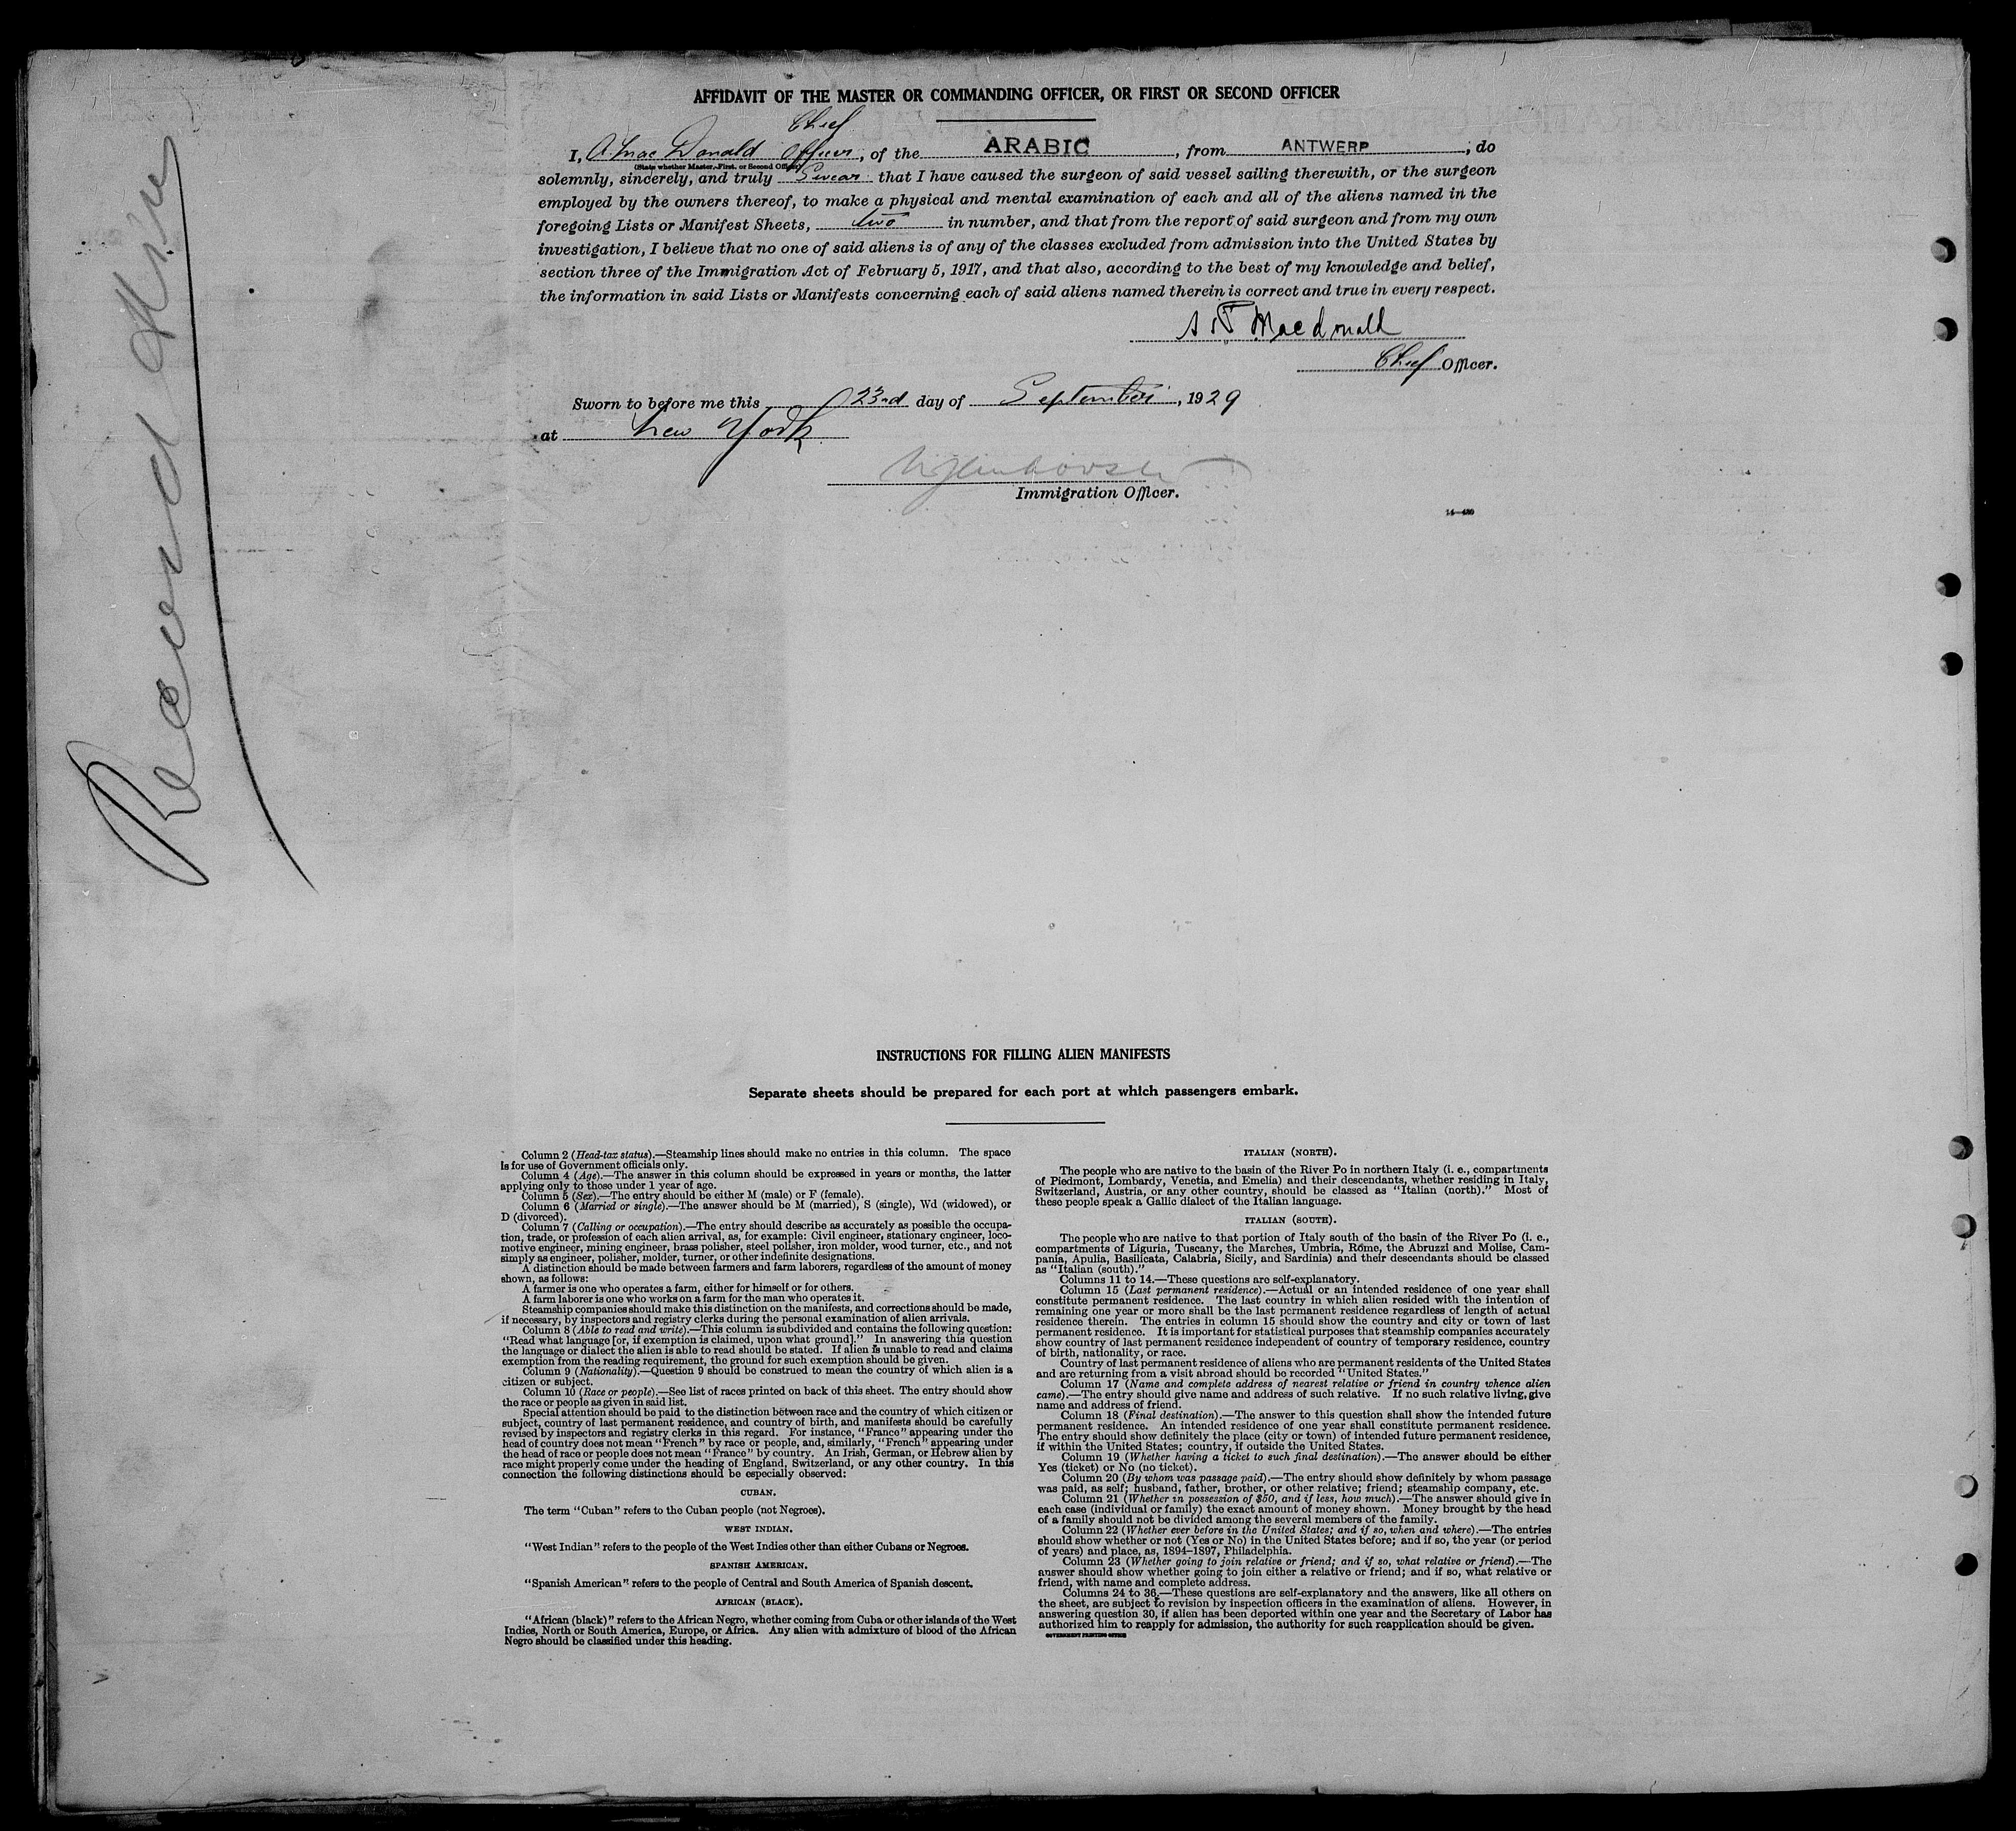 AFFIDAVIT OF THE MASTER OR COMMANDING OFFICER, OR FIRST OR SECOND OFFICER
Chief
I, A. MacDonald Officer, of the ARABIC, from ANTWERP, do
(State whether Master, First, or Second Officer)
solemnly, sincerely, and truly Swear that I have caused the surgeon of said vessel sailing therewith, or the surgeon
employed by the owners thereof, to make a physical and mental examination of each and all of the aliens named in the
foregoing Lists or Manifest Sheets, two in number, and that from the report of said surgeon and from my own
investigation, I believe that no one of said aliens is of any of the classes excluded from admission into the United States by
section three of the Immigration Act of February 5, 1917, and that also, according to the best of my knowledge and belief,
the information in said Lists or Manifests concerning each of said aliens named therein is correct and true in every respect.
Macdonald
Chief Officer.
Sworn to before me this 23rd day of September, 1929
at New York
Immigration Officer.
Record
INSTRUCTIONS FOR FILLING ALIEN MANIFESTS
Separate sheets should be prepared for each port at which passengers embark.
Column 2 (Head-tax status).—Steamship lines should make no entries in this column. The space
is for use of Government officials only.
Column 4 (Age).—The answer in this column should be expressed in years or months, the latter
applying only to those under 1 year of age.
Column 5 (Sex).—The entry should be either M (male) or F (female).
Column 6 (Married or single).—The answer should be M (married), S (single), Wd (widowed), or
D (divorced).
Column 7 (Calling or occupation).—The entry should describe as accurately as possible the occupa-
tion, trade, or profession of each alien arrival, as, for example: Civil engineer, stationary engineer, loco-
motive engineer, mining engineer, brass polisher, steel polisher, iron molder, wood turner, etc., and not
simply as engineer, polisher, molder, turner, or other indefinite designations.
A distinction should be made between farmers and farm laborers, regardless of the amount of money
shown, as follows:
A farmer is one who operates a farm, either for himself or for others.
A farm laborer is one who works on a farm for the man who operates it.
Steamship companies should make this distinction on the manifests, and corrections should be made,
if necessary, by inspectors and registry clerks during the personal examination of alien arrivals.
Column 8 (Able to read and write).—This column is subdivided and contains the following question:
"Read what language [or, if exemption is claimed, upon what ground]." In answering this question
the language or dialect the alien is able to read should be stated. If alien is unable to read and claims
exemption from the reading requirement, the ground for such exemption should be given.
Column 9 (Nationality).—Question 9 should be construed to mean the country of which alien is a
citizen or subject.
Column 10 (Race or people).—See list of races printed on back of this sheet. The entry should show
the race or people as given in said list.
Special attention should be paid to the distinction between race and the country of which citizen or
subject, country of last permanent residence, and country of birth, and manifests should be carefully
revised by inspectors and registry clerks in this regard. For instance, "France" appearing under the
head of country does not mean "French" by race or people, and, similarly, "French" appearing under
the head of race or people does not mean "France" by country. An Irish, German, or Hebrew alien by
race might properly come under the heading of England, Switzerland, or any other country. In this
connection the following distinctions should be especially observed:
CUBAN.
The term "Cuban" refers to the Cuban people (not Negroes).
WEST INDIAN.
"West Indian" refers to the people of the West Indies other than either Cubans or Negroes.
SPANISH AMERICAN.
"Spanish American" refers to the people of Central and South America of Spanish descent.
AFRICAN (BLACK).
"African (black)" refers to the African Negro, whether coming from Cuba or other islands of the West
Indies, North or South America, Europe, or Africa. Any alien with admixture of blood of the African
Negro should be classified under this heading.
ITALIAN (NORTH).
The people who are native to the basin of the River Po in northern Italy (i. e., compartments
of Piedmont, Lombardy, Venetia, and Emelia) and their descendants, whether residing in Italy,
Switzerland, Austria, or any other country, should be classed as "Italian (north)." Most of
these people speak a Gallic dialect of the Italian language.
ITALIAN (SOUTH).
The people who are native to that portion of Italy south of the basin of the River Po (i. e.,
compartments of Liguria, Tuscany, the Marches, Umbria, Rome, the Abruzzi and Molise, Cam-
pania, Apulia, Basilicata, Calabria, Sicily, and Sardinia) and their descendants should be classed
as "Italian (south)."
Columns 11 to 14.—These questions are self-explanatory.
Column 15 (Last permanent residence).—Actual or an intended residence of one year shall
constitute permanent residence. The last country in which alien resided with the intention of
remaining one year or more shall be the last permanent residence regardless of length of actual
residence therein. The entries in column 15 should show the country and city or town of last
permanent residence. It is important for statistical purposes that steamship companies accurately
show country of last permanent residence independent of country of temporary residence, country
of birth, nationality, or race.
Country of last permanent residence of aliens who are permanent residents of the United States
and are returning from a visit abroad should be recorded "United States."
Column 17 (Name and complete address of nearest relative or friend in country whence alien
came).—The entry should give name and address of such relative. If no such relative living, give
name and address of friend.
Column 18 (Final destination).—The answer to this question shall show the intended future
permanent residence. An intended residence of one year shall constitute permanent residence.
The entry should show definitely the place (city or town) of intended future permanent residence,
if within the United States; country, if outside the United States.
Column 19 (Whether having a ticket to such final destination).—The answer should be either
Yes (ticket) or No (no ticket).
Column 20 (By whom was passage paid).—The entry should show definitely by whom passage
was paid, as self; husband, father, brother, or other relative; friend; steamship company, etc.
Column 21 (Whether in possession of $50, and if less, how much).—The answer should give in
each case (individual or family) the exact amount of money shown. Money brought by the head
of a family should not be divided among the several members of the family.
Column 22 (Whether ever before in the United States; and if so, when and where).—The entries
should show whether or not (Yes or No) in the United States before; and if so, the year (or period
of years) and place, as, 1894–1897, Philadelphia.
Column 23 (Whether going to join relative or friend; and if so, what relative or friend).—The
answer should show whether going to join either a relative or friend; and if so, what relative or
friend, with name and complete address.
Columns 24 to 36.—These questions are self-explanatory and the answers, like all others on
the sheet, are subject to revision by inspection officers in the examination of aliens. However, in
answering question 30, if alien has been deported within one year and the Secretary of Labor has
authorized him to reapply for admission, the authority for such reapplication should be given.
GOVERNMENT PRINTING OFFICE